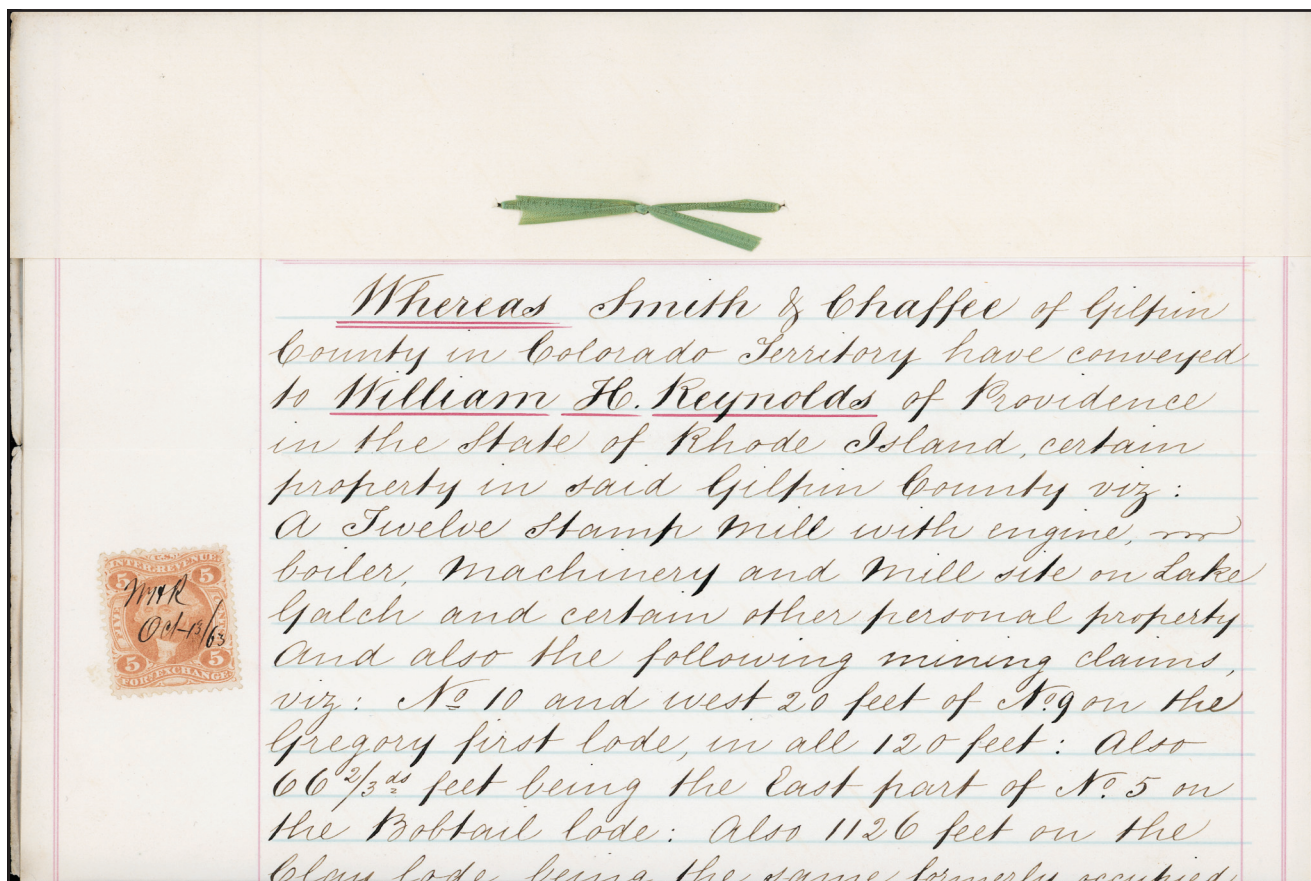 Whereas Smith & Chaffee of Gilpin
County in Colorado Territory have conveyed
to William H. Reynolds of Providence
in the State of Rhode Island, certain
property in said Gilpin County viz:
A Twelve Stamp Mill with engine,
boiler, Machinery and Mill site on Lake
Galch and certain other personal property
And also the following mining claims,
viz: No 10 and west 20 feet of No. 9 on the
Gregory first lode, in all 120 feet: Also
66 2/3ds feet being the East part of No. 5 on
the Bobtail lode: Also 1126 feet on the
Clay lode being the same formerly occupied
U.S.
INTER. REVENUE
5 5
FIVE
WHR
Oct 13/63
5 5
FOR. EXCHANGE